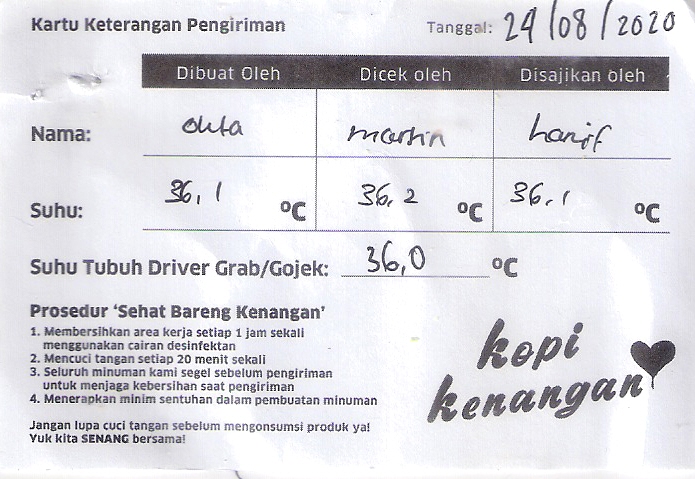 Kartu Keterangan Pengiriman Tanggal: 24/08/2020
Dibuat Oleh Dicek oleh Disajikan oleh
Nama: okta martin hanif
Suhu: 36,1 °C 36,2 °C 36,1 °C
Suhu Tubuh Driver Grab/Gojek: 36,0 °C
Prosedur ‘Sehat Bareng Kenangan’
1. Membersihkan area kerja setiap 1 jam sekali
menggunakan cairan desinfektan
2. Mencuci tangan setiap 20 menit sekali
3. Seluruh minuman kami segel sebelum pengiriman
untuk menjaga kebersihan saat pengiriman
4. Menerapkan minim sentuhan dalam pembuatan minuman
Jangan lupa cuci tangan sebelum mengonsumsi produk ya!
Yuk kita SENANG bersama!
kopi
kenangan